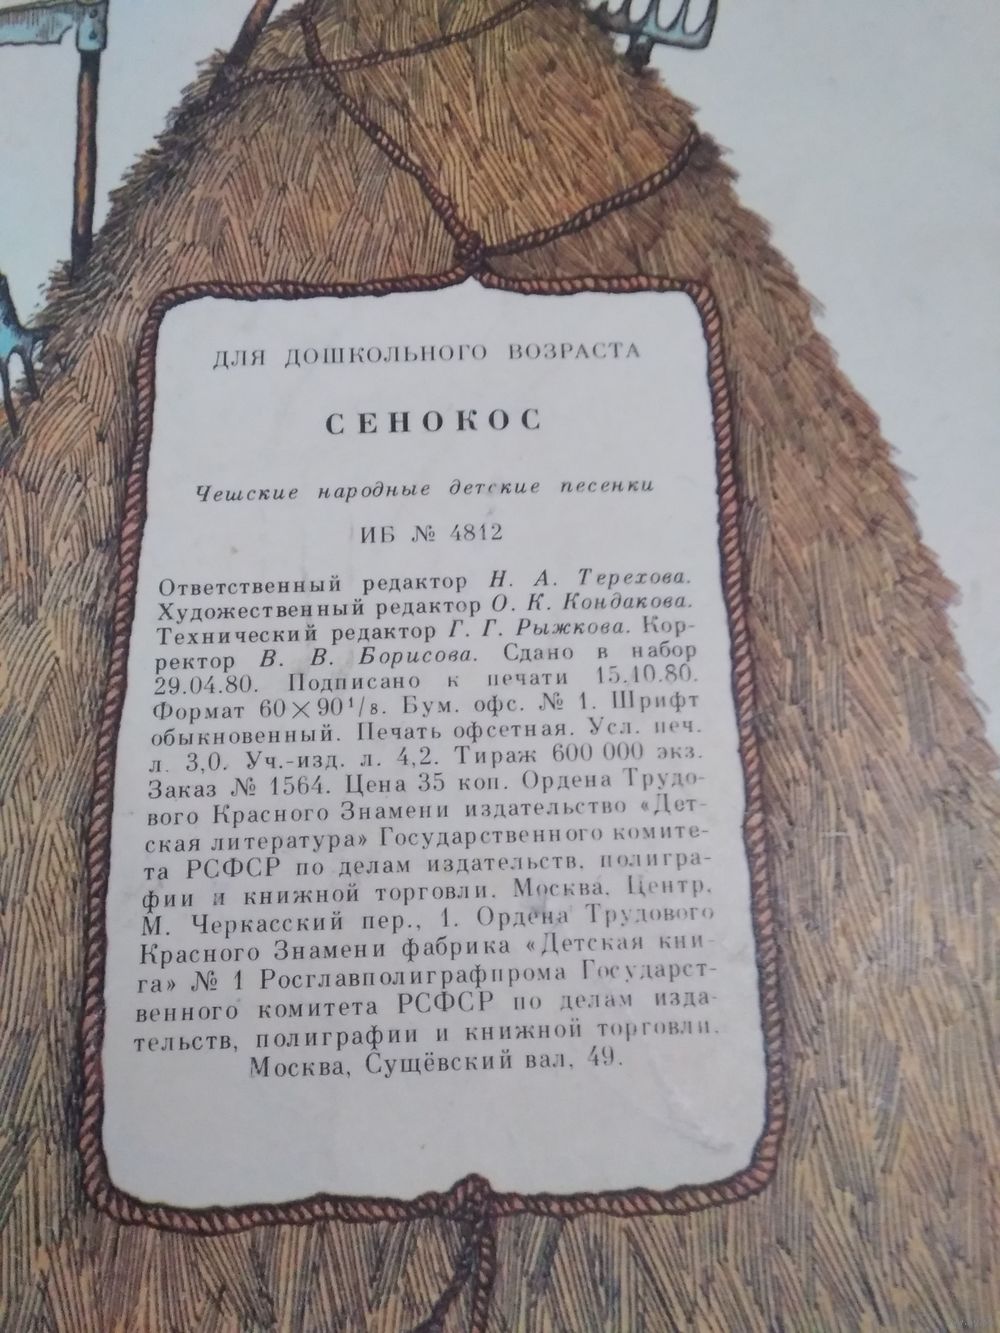 ДЛЯ ДОШКОЛЬНОГО ВОЗРАСТА
СЕНОКОС
Чешские народные детские песенки
ИБ № 4812
Ответственный редактор Н. А. Терехова.
Художественный редактор О. К. Кондакова.
Технический редактор Г. Г. Рыжкова. Кор-
ректор В. В. Борисова. Сдано в набор
29.04.80. Подписано к печати 15.10.80.
Формат 60×90¹/₈. Бум. офс. № 1. Шрифт
обыкновенный. Печать офсетная. Усл. печ.
л. 3,0. Уч.-изд. л. 4,2. Тираж 600 000 экз.
Заказ № 1564. Цена 35 коп. Ордена Трудо-
вого Красного Знамени издательство «Дет-
ская литература» Государственного комите-
та РСФСР по делам издательств, полигра-
фии и книжной торговли. Москва, Центр,
М. Черкасский пер., 1. Ордена Трудового
Красного Знамени фабрика «Детская кни-
га» № 1 Росглавполиграфпрома Государст-
венного комитета РСФСР по делам изда-
тельств, полиграфии и книжной торговли.
Москва, Сущёвский вал, 49.